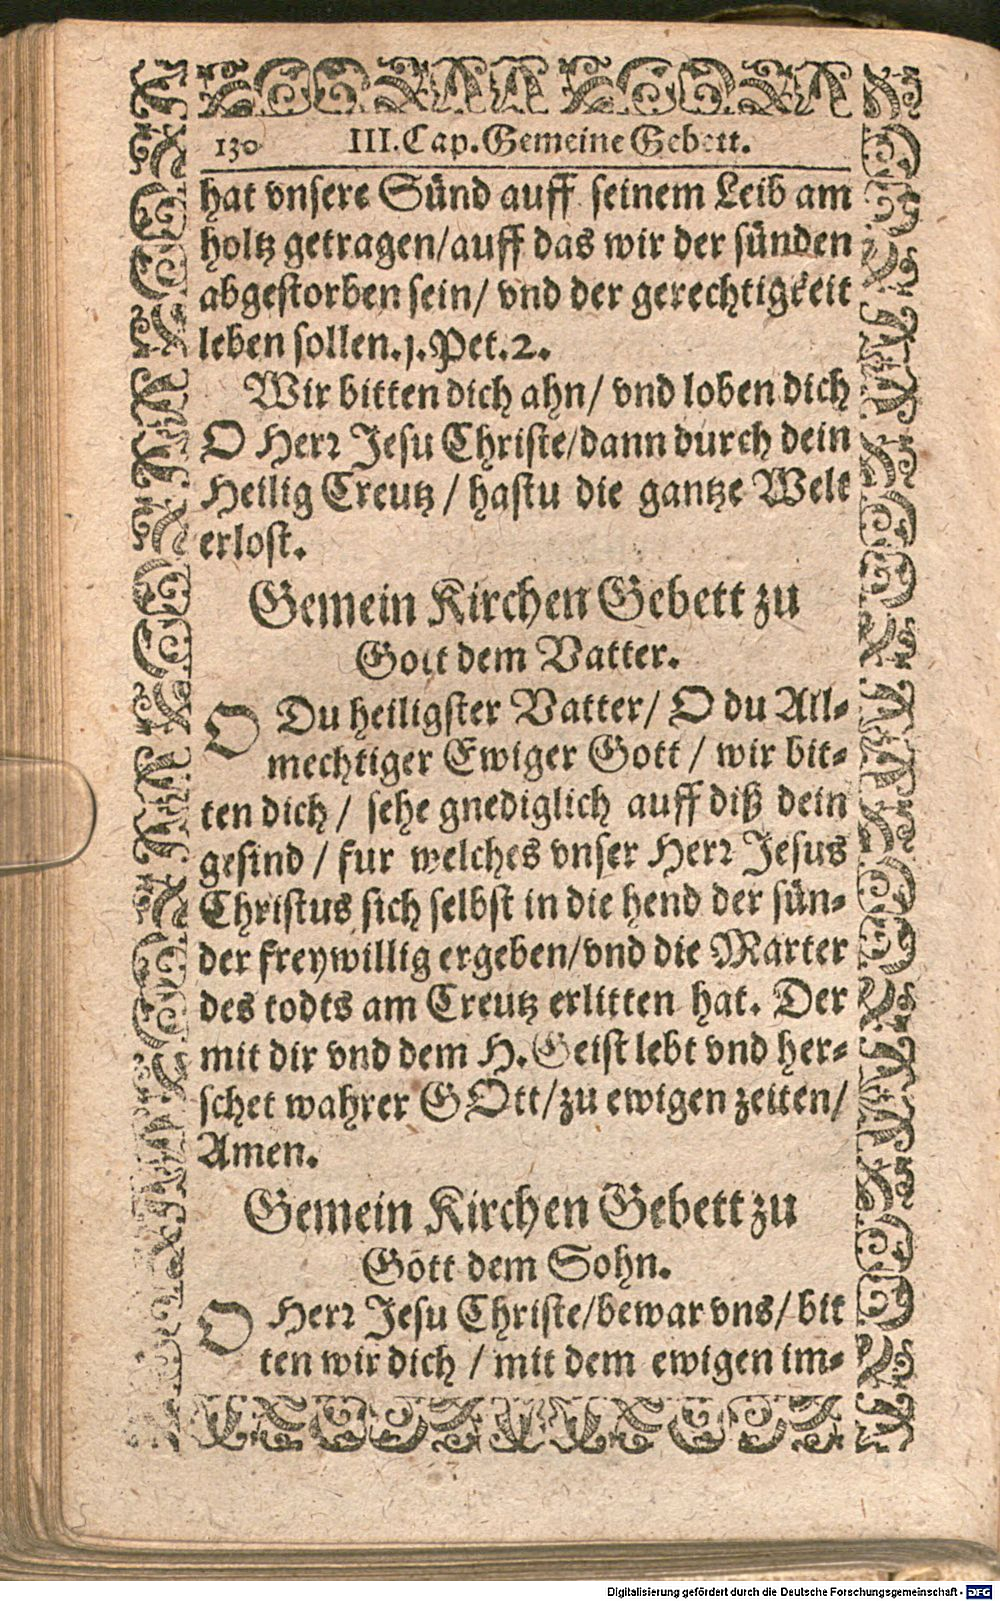 130 III. Cap. Gemeine Gebett.
hat vnsere Sünd auff seinem Leib am
holtz getragen/ auff das wir der sünden
abgestorben sein/ vnd der gerechtigkeit
leben sollen. 1. Pet. 2.
Wir bitten dich ahn/ vnd loben dich
O Herr Jesu Christe/ dann durch dein
Heilig Creutz / hastu die gantze Welt
erlost.
Gemein Kirchen Gebett zu
Gott dem Vatter.
O Du heiligster Vatter/ O du All-
mechtiger Ewiger Gott / wir bit-
ten dich / sehe gnediglich auff diß dein
gesind / fur welches vnser Herr Jesus
Christus sich selbst in die hend der sün-
der freywillig ergeben/ vnd die Marter
des todts am Creutz erlitten hat. Der
mit dir vnd dem H. Geist lebt vnd her-
schet wahrer GOtt/ zu ewigen zeiten/
Amen.
Gemein Kirchen Gebett zu
Gott dem Sohn.
O Herr Jesu Christe/ bewar vns/ bit
ten wir dich / mit dem ewigen im-
Digitalisierung gefördert durch die Deutsche Forschungsgemeinschaft - DFG